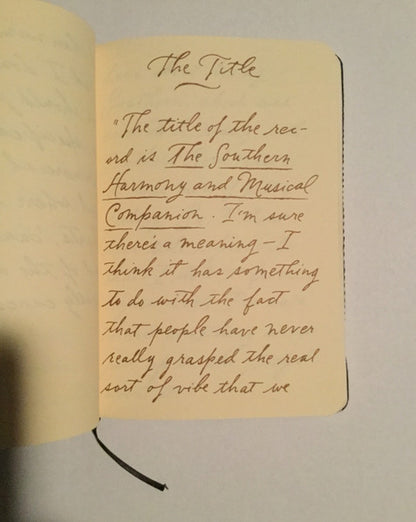 The Title
"The title of the rec-
ord is The Southern
Harmony and Musical
Companion. I'm sure
there's a meaning – I
think it has something
to do with the fact
that people have never
really grasped the real
sort of vibe that we